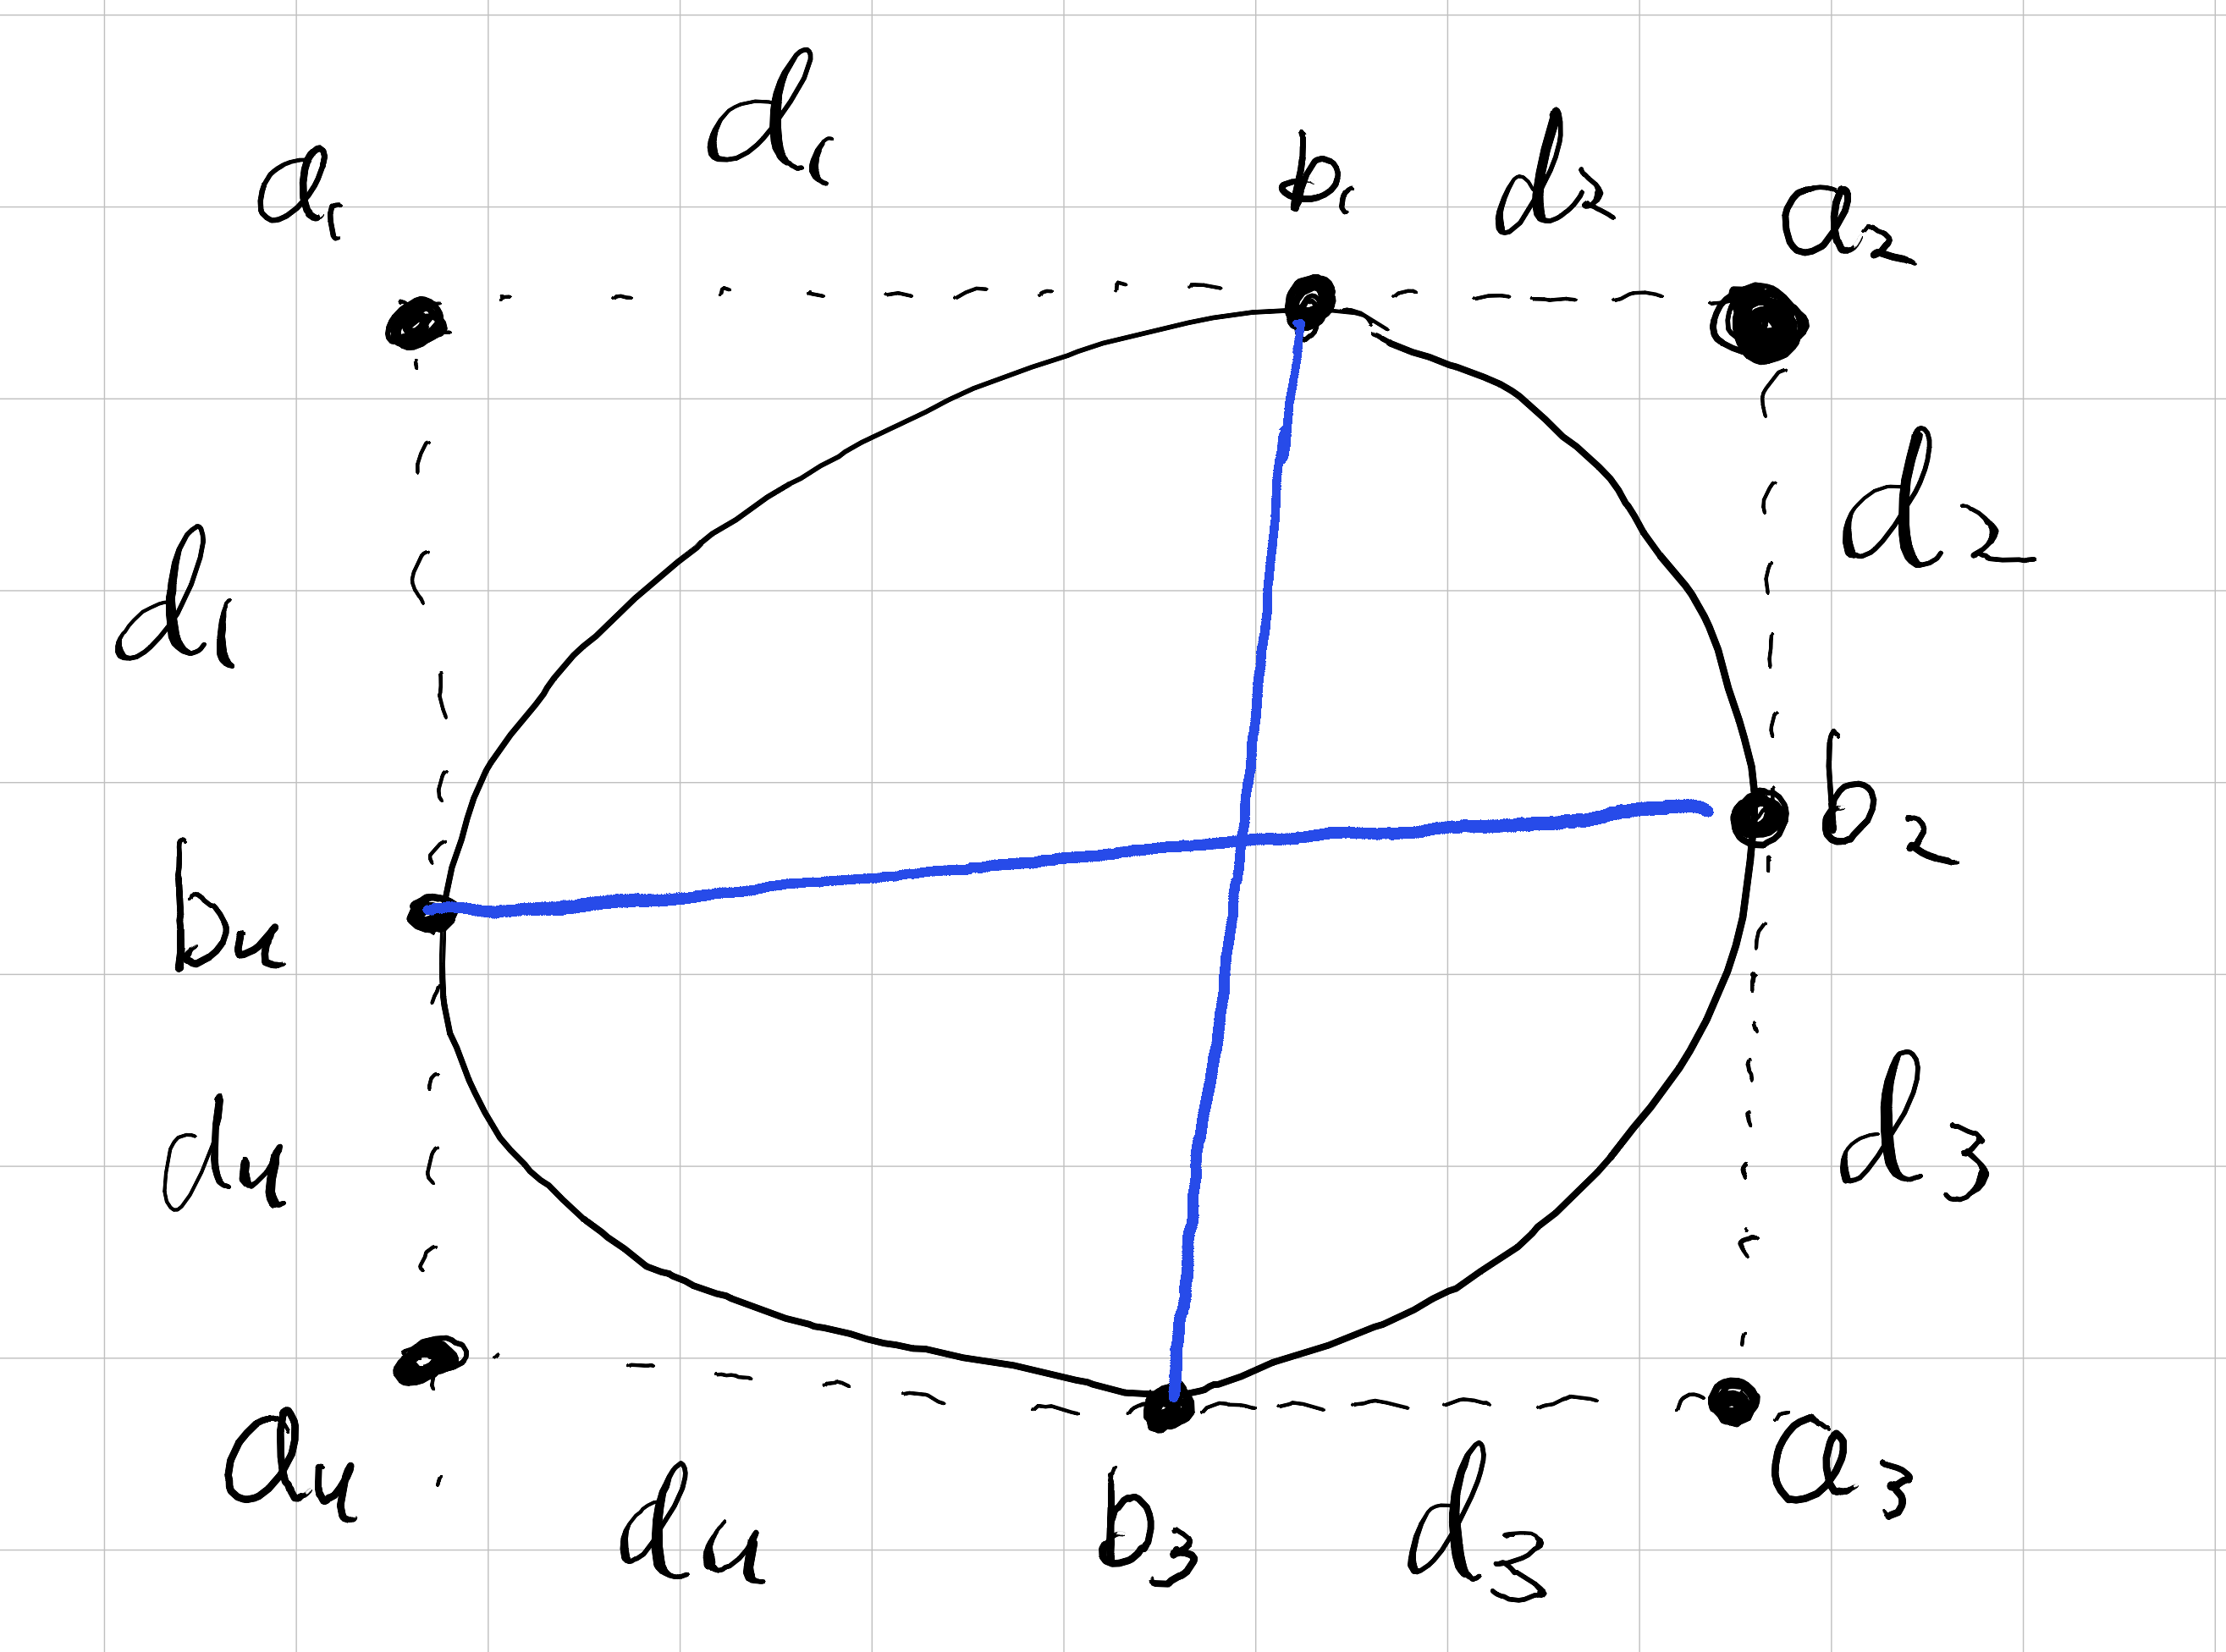 d₁
a₁ b₁ d₂ a₂
d₁ d₂
b₄ b₂
d₄ d₃
a₄ d₄ b₃ d₃ a₃